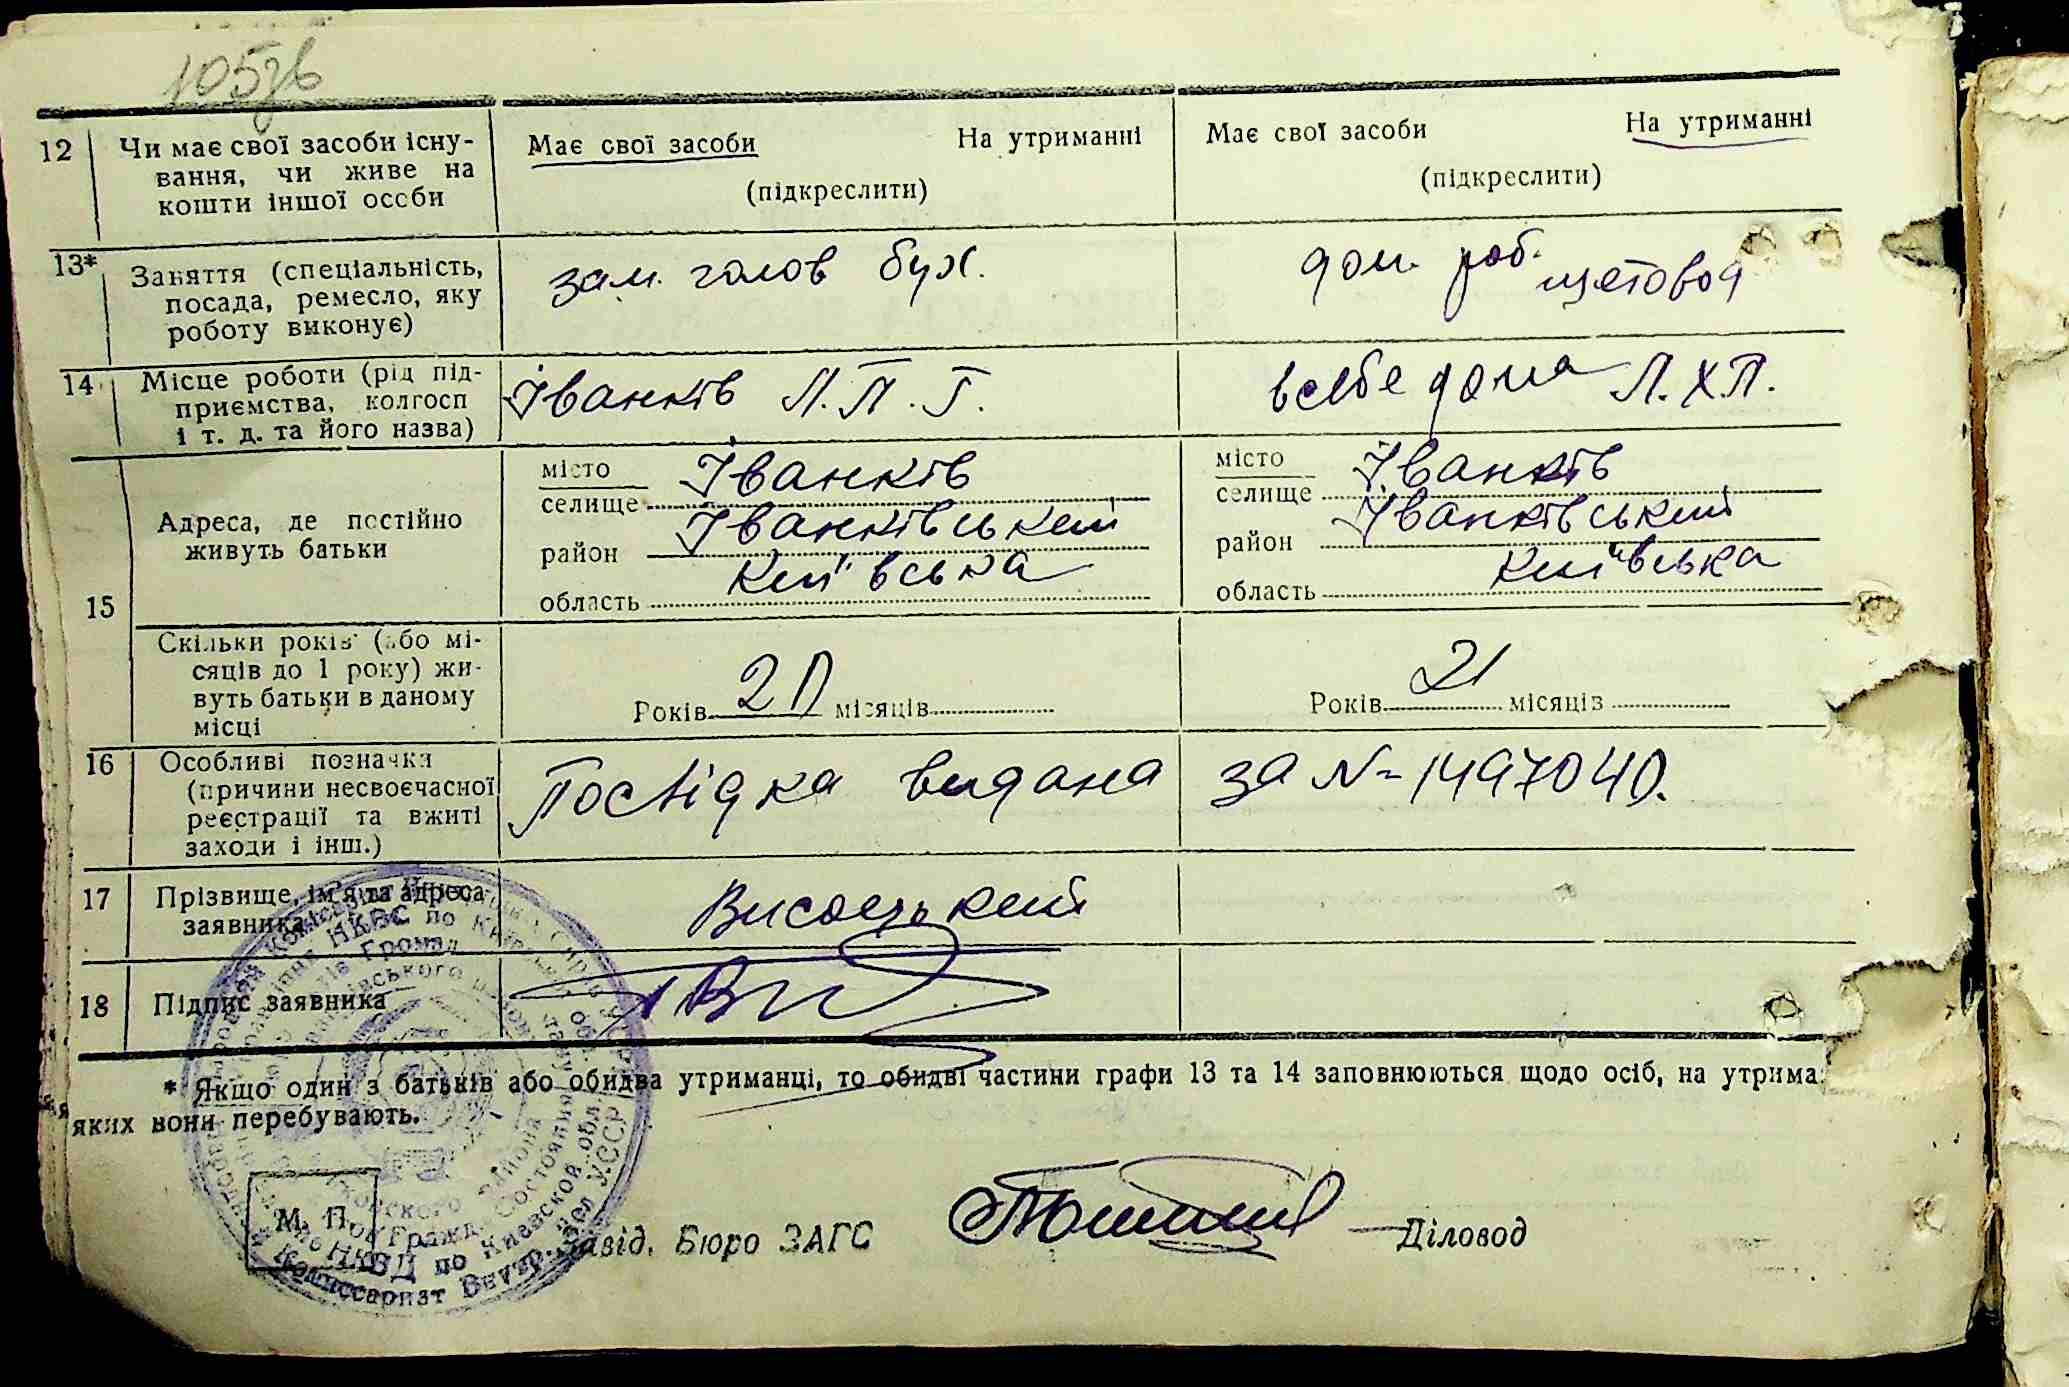 105зв
12 Чи має свої засоби існу-
вання, чи живе на
кошти іншої особи
Має свої засоби На утриманні
(підкреслити)
Має свої засоби На утриманні
(підкреслити)
13* Заняття (спеціальність,
посада, ремесло, яку
роботу виконує)
зам. голов бух.
дом. роб.
щетовод
14 Місце роботи (рід під-
приємства, колгосп
і т. д. та його назва)
Іванків Л.П.Г.
в себе дома Л.Х.П.
15
Адреса, де постійно
живуть батьки
місто Іванків
селище
район Іванківський
область Київська
місто Іванків
селище
район Іванківський
область Київська
Скільки років (або мі-
сяців до 1 року) жи-
вуть батьки в даному
місці
Років 20 місяців
Років 21 місяців
16 Особливі позначки
(причини несвоєчасної
реєстрації та вжиті
заходи і інш.)
Посвідка видана за № 1497040.
17 Прізвище, ім'я та адреса
заявника
Висоцький
18 Підпис заявника
* Якщо один з батьків або обидва утриманці, то обидві частини графи 13 та 14 заповнюються щодо осіб, на утрима
яких вони перебувають.
М. П.
Завід. Бюро ЗАГС
Діловод